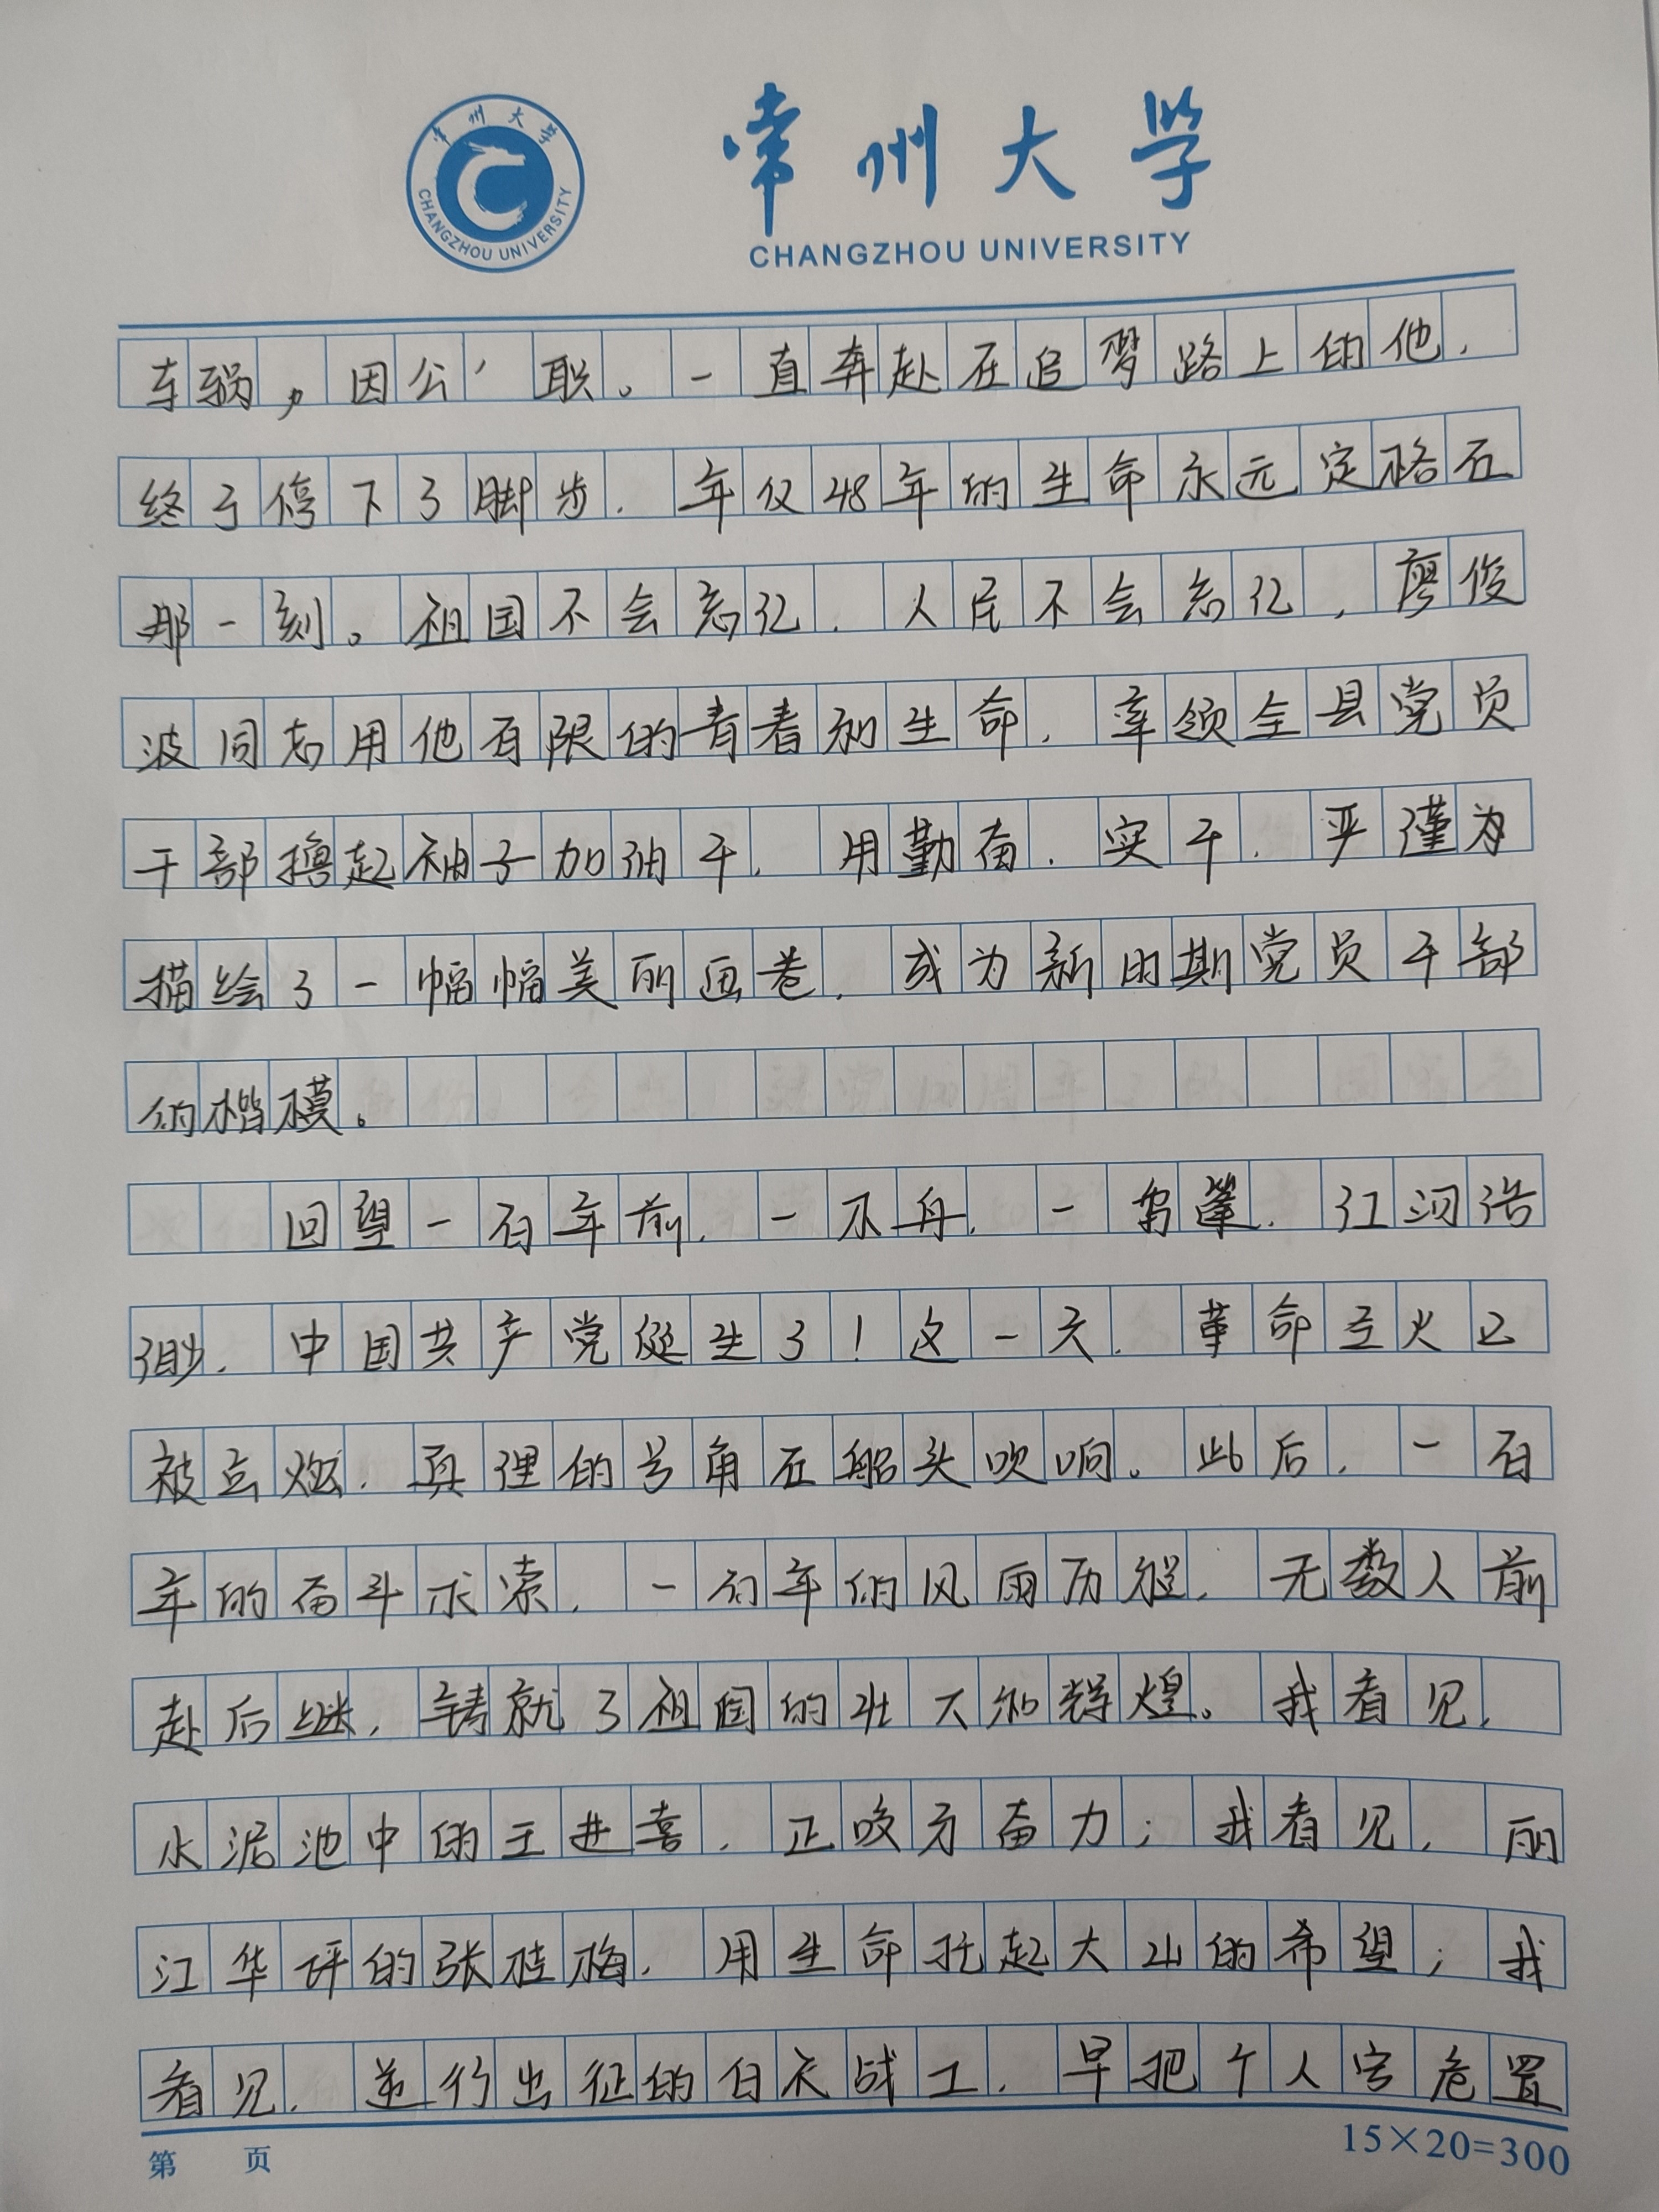 常州大学
CHANGZHOU UNIVERSITY
常州大学
CHANGZHOU UNIVERSITY
车祸，因公'职。一直奔赴在追梦路上的他，
终于停下了脚步，年仅48年的生命永远定格在
那一刻。祖国不会忘记，人民不会忘记，廖俊
波同志用他有限的青春和生命，率领全县党员
干部撸起袖子加油干，用勤奋、实干、严谨为
描绘了一幅幅美丽画卷，成为新时期党员干部
的楷模。
回望一百年前，一木舟，一乌篷，江河浩
渺，中国共产党诞生了！这一天，革命圣火已
被点燃，真理的号角在船头吹响。此后，一百
年的奋斗求索，一百年的风雨历程，无数人前
赴后继，铸就了祖国的壮大和辉煌。我看见，
水泥池中的王进喜，正咬牙奋力；我看见，丽
江华坪的张桂梅，用生命托起大山的希望；我
看见，逆行出征的白衣战士，早把个人安危置
第 页
15×20=300